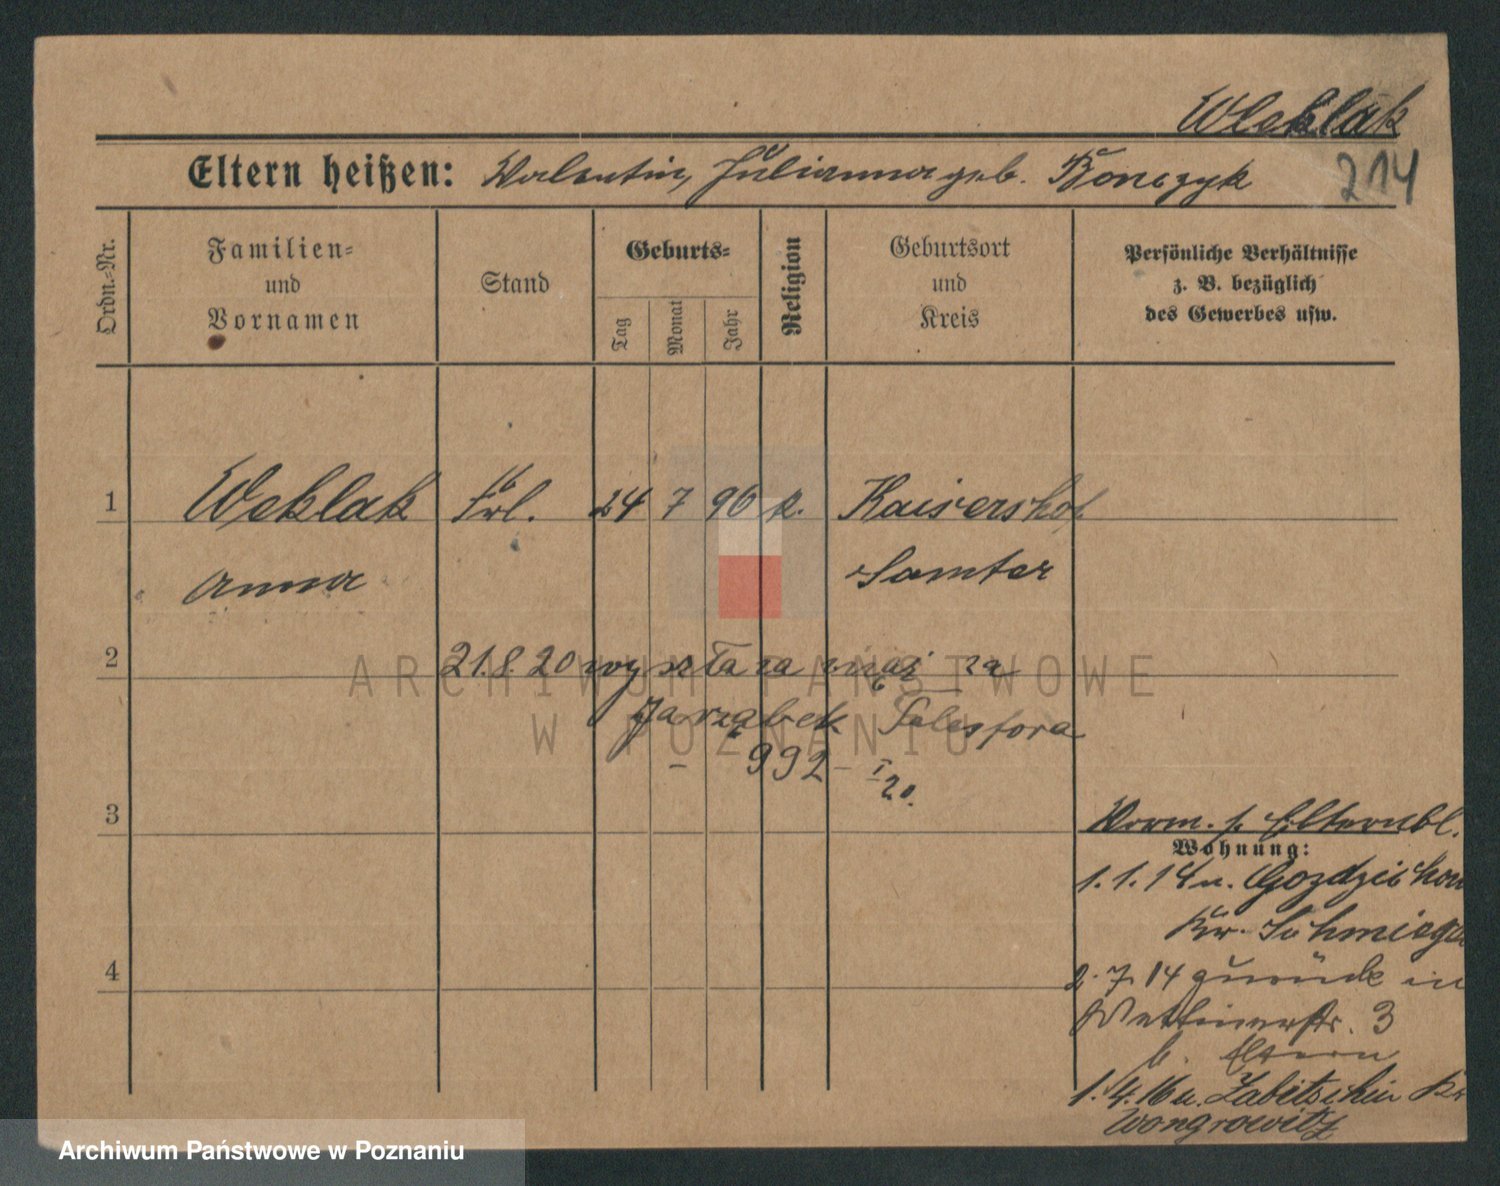 Weklak
Eltern heißen: Valentin, Julianna geb. Bonczyk
214
Ordn.-Nr.
Familien-
und
Vornamen
Stand
Geburts-
Tag
Monat
Jahr
Religion
Geburtsort
und
Kreis
Persönliche Verhältnisse
z. B. bezüglich
des Gewerbes usw.
1 Weklak Frl. 24 7 96 k. Kaisershof
Anna Samter
2 21.8.20 wyszła za mąż za
Jarząbek Telesfora
- 992 - I
20.
3
Vorm. s. Elternbl.
Wohnung:
1.1.14 n.
Kr. Schmiegel
4
2.7.14 zurück in
Wettinerstr. 3
b. Eltern
1.4.16 n. Zabitschin Kr
Wongrowitz
ARCHIWUM PAŃSTWOWE
W POZNANIU
Archiwum Państwowe w Poznaniu